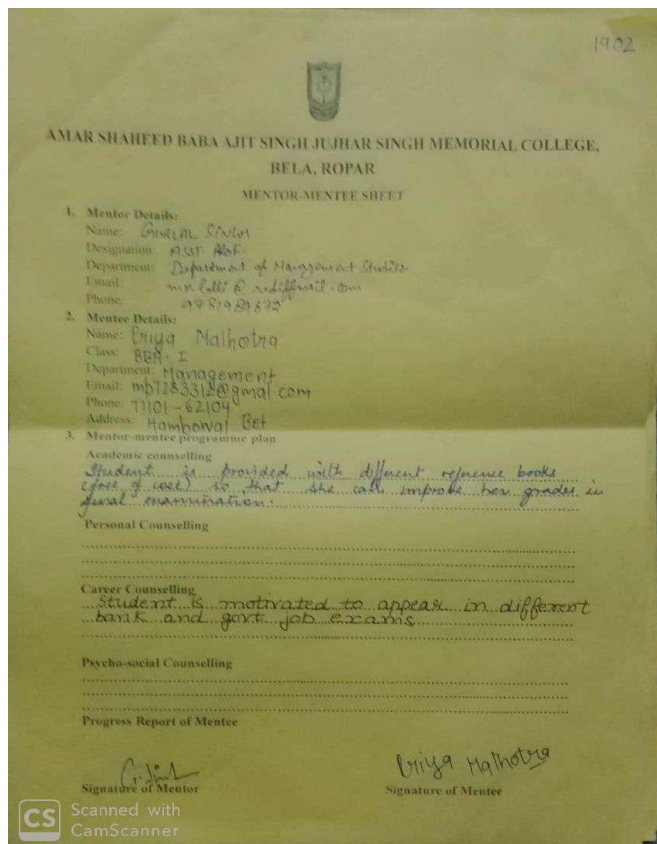 1902
AMAR SHAHEED BABA AJIT SINGH JUJHAR SINGH MEMORIAL COLLEGE,
BELA, ROPAR
MENTOR-MENTEE SHEET
1. Mentor Details:
Name: Singh
Designation: Asst Prof.
Department: Department of Management Studies.
Email: @ rediffmail.com
Phone:
2. Mentee Details:
Name: Priya Malhotra
Class: BBA-I
Department: Management
Email: mp7283312@gmal.com
Phone: 77101-62104
Address: Hambowal Bet
3. Mentor-mentee programme plan
Academic counselling
Student is provided with different reference books
(free of cost) so that she can improve her grades in
final examination.
Personal Counselling
Career Counselling
Student is motivated to appear in different
bank and govt. job exams
Psycho-social Counselling
Progress Report of Mentee
Priya Malhotra
Signature of Mentor
Signature of Mentee
CS Scanned with
CamScanner